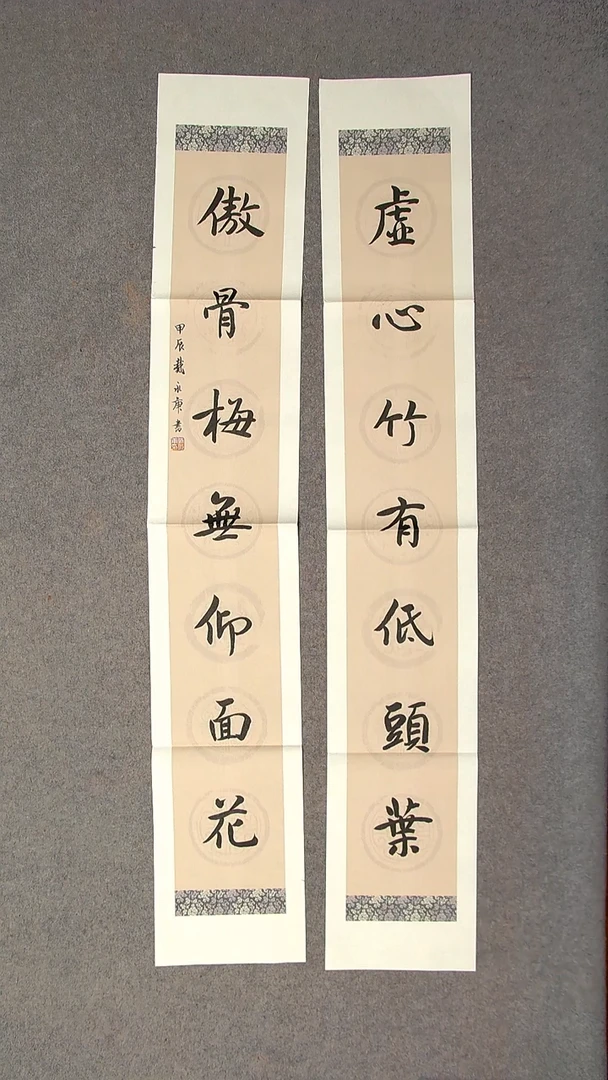 虛心竹有低頭葉
傲骨梅無仰面花
甲辰戴永廣書